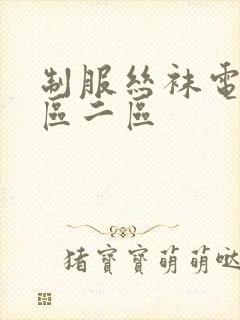 制服丝袜電
區二區
猪寳寳萌萌哒